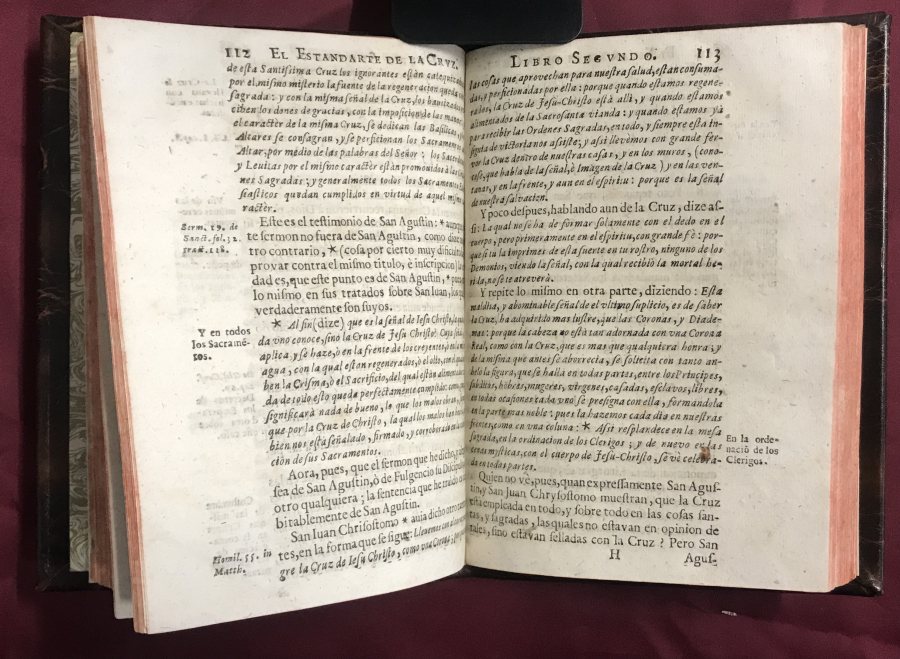 112 EL ESTANDARTE DE LA CRVZ.
de esta Santissima Cruz los ignorantes estàn catequizados
por el mismo misterio la fuente de la regeneracion queda con-
sagrada: y con la misma señal de la Cruz, los bautizados re-
ciben los dones de gracias, con la imposicion de las manos
el caractèr de la misma Cruz, se dedican las Basilicas, los
Altares se consagran, y se perficionan los Sacramentos
Altar, por medio de las palabras del Señor: los Sacerdotes
y Levitas por el mismo caractèr estàn promovidos à las
nes Sagradas; y generalmente todos los Sacramentos
siasticos quedan cumplidos en virtud de aquel mismo
ractèr.
Serm. 19. de
Sanct. fol. 32.
Este es el testimonio de San Agustin: * aunque
te sermon no fuera de San Agustin, como dize
tro contrario, * (cosa por cierto muy dificultosa
provar contra el mismo titulo, è inscripcion) la
dad es, que este punto es de San Agustin,
lo mismo en sus tratados sobre San Iuan, los
verdaderamente son suyos.
Y en todos
los Sacramē-
tos.
* Al fin (dize) que es la señal de Iesu Christo,
da vno conoce, sino la Cruz de Jesu Christo? Cuya
aplica, y se haze, ò en la frente de los creyentes,
agua, con la qual estan regenerados, ò el olio, con el
ben la Crisma, ò el Sacrificio, del qual estàn alimentados
da de todo esto queda perfectamente cumplido: como,
significarà nada de bueno, lo que los malos obran,
que por la Cruz de Christo, la qual los malos
bien nos està señalado, firmado, y corroborado
ciòn de sus Sacramentos.
Aora, pues, que el sermon que he dicho,
sea de San Agustin, ò de Fulgencio su Discipulo
otro qualquiera; la sentencia que he traìdo
bitablemente de San Agustin.
Homil. 55. in
Matth.
San Iuan Chrisostomo * auia dicho otro
tes, en la forma que se sigue: Llevemos con
gre la Cruz de Iesu Christo, como vna Corona;
LIBRO SEGVNDO. 113
las cosas que aprovechan para nuestra salud, estan consuma-
das, y perficionadas por ella: porque quando estamos regene-
rados, la Cruz de Jesu-Christo està alli, y quando estamos
alimentados de la Sacrosanta vianda: y quando estamos yà
para recibir las Ordenes Sagradas, en todo, y siempre esta in-
signia de victoria nos assiste; y assi llevemos con grande fer-
vor la Cruz dentro de nuestras casas, y en los muros, (cono-
cese, que habla de la señal, è Imagen de la Cruz) y en las ven-
tanas, y en la frente, y aun en el espiritu: porque es la señal
de nuestra salvacion.
Y poco despues, hablando aun de la Cruz, dize as-
si: La qual no se ha de formar solamente con el dedo en el
cuerpo, pero primeramente en el espiritu, con grande fè: por-
que si tu la imprimes de esta suerte en tu rostro, ninguno de los
Demonios, viendo la señal, con la qual recibiò la mortal he-
rida, no se te atreverà.
Y repite lo mismo en otra parte, diziendo: Esta
maldita, y abominable señal de el vltimo suplicio, es de sàber
la Cruz, ha adquirido mas lustre, que las Coronas, y Diade-
mas: porque la cabeza no està tan adornada con vna Corona
Real, como con la Cruz, que es mas que qualquiera honra; y
de la misma que antes se aborrecia, se solicita con tanto an-
helo la figura, que se halla en todas partes, entre los Principes,
subditos, hòbres, mugeres, virgenes, casadas, esclavos, libres,
en todas ocasiones cada vno se presigna con ella, formandola
en la parte mas noble: pues la hazemos cada dia en nuestras
frentes, como en vna coluna: * Assi resplandece en la mesa
sagrada, en la ordinacion de los Clerigos; y de nuevo en las
cenas mysticas, con el cuerpo de Jesu-Christo, se vè celebra-
da en todas partes.
En la orde-
naciō de los
Clerigos.
Quien no vè, pues, quan expressamente San Agus-
tin, y San Juan Chrysostomo muestran, que la Cruz
està emplicada en todo, y sobre todo en las cosas san-
tas, y sagradas, las quales no estavan en opinion de
tales, sino estavan selladas con la Cruz? Pero San
H
Agus-